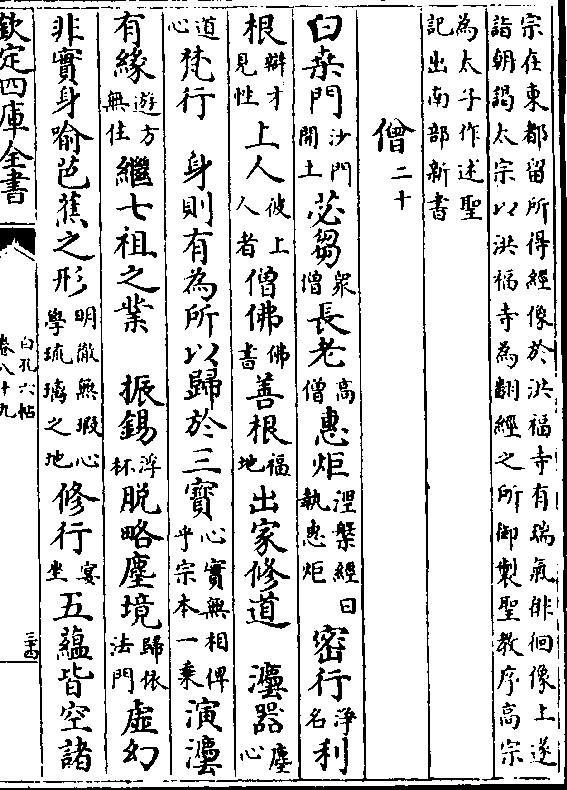 宗在東都留所得經像於洪福寺有瑞氣徘徊像上遂
詣朝謁太宗以洪福寺為翻經之所御製聖教序高宗
為太子作述聖
記出南部新書
僧二十
白桒門沙門開士苾芻眾僧長老高僧惠炬涅槃經曰執惠炬密行淨名利
根辯才見性上人彼上人者僧佛佛書善根福地出家修道灋器塵心
道心梵行身則有為所以歸於三寶心實無相俾乎宗本一乗演灋
有緣遊方無住繼七祖之業振錫浮杯脱略塵境歸依法門虛幻
非實身喻芭蕉之形明徹無瑕心學琉璃之地修行宴坐五蘊皆空諸
欽定四庫全書
白孔六帖
卷八十九
三十四